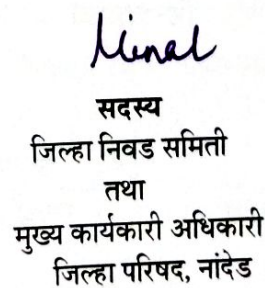 Minal
सदस्य
जिल्हा निवड समिती
तथा
मुख्य कार्यकारी अधिकारी
जिल्हा परिषद, नांदेड